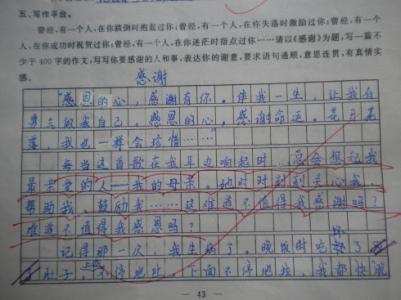 五、写作平台。
曾经,有一个人,在你跌倒时抱起过你;曾经,有一个人,在你失落时激励过你;曾经,有一个
人,在你成功时祝贺过你;曾经,有一个人,在你迷茫时指点过你……请以《感谢》为题,写一篇不
少于400字的作文,写写你要感谢的人和事,表达你的谢意,要求语句通顺,意思连贯,有真情实
感。
感谢
“感恩的心,感谢有你。伴我一生,让我有
勇气做我自己。感恩的心,感谢命运。花开花
落,我也一样会珍惜……”
每当这首歌在我耳边响起时,总会想起我
最亲爱的人——我的母亲。她时时刻刻关心我、
帮助我、鼓励我……这难道不值得我感谢吗?
难道不值得我感恩吗?
记得那一次,我生病了。晚饭时吃
肚子,上不停地吐,下面不停地拉,我都快
— 43 —